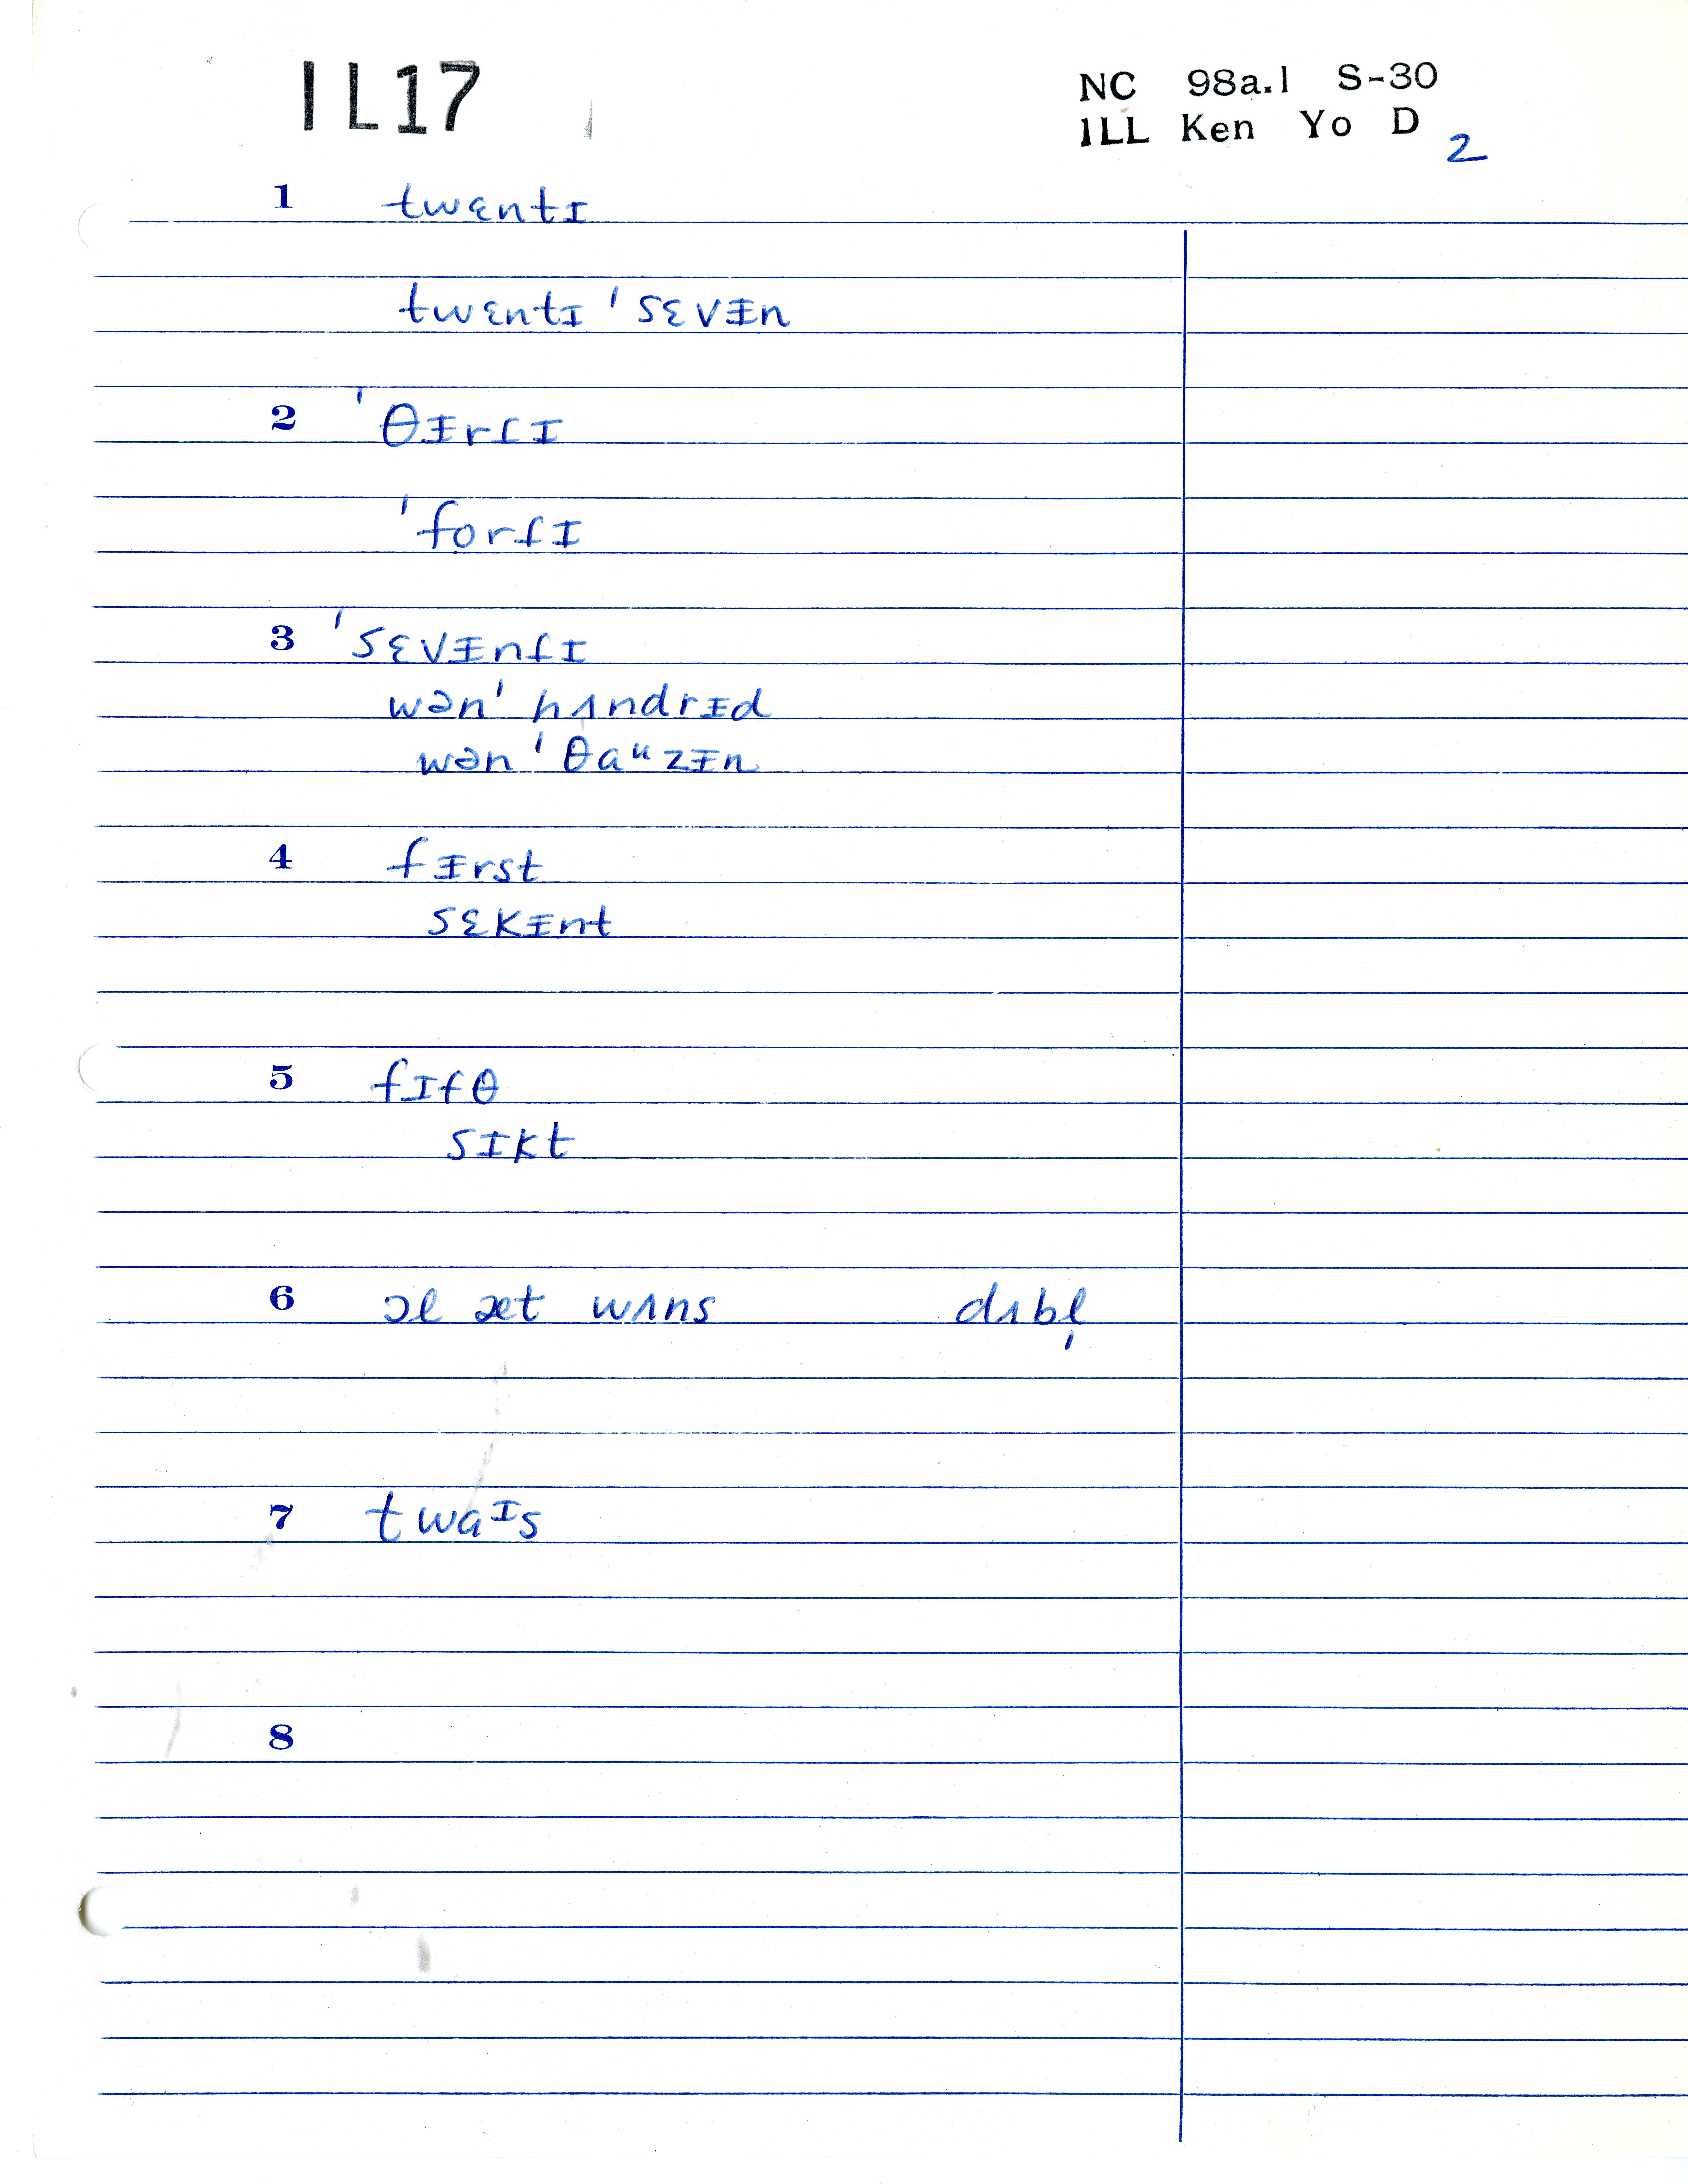 IL17
NC 98a.1 S-30
ILL Ken Yo D
2
1 twɛntɪ
twɛntɪ ˈsɛvᵻn
2 ˈθᵻrt̬ɪ
ˈfort̬ɪ
3 ˈsɛvᵻnt̬ɪ
wənˈ hʌndrᵻd
wənˈ θaᵘzᵻn
4 fᵻrst
sɛkᵻnt
5 fɪfθ
sɪkt
6 ɔl æt wʌns dʌbl̩
7 twaᶦs
8